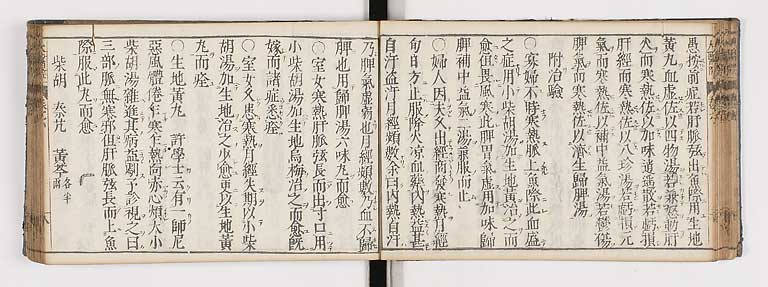 愚按前症若肝脈弦出魚際用生地
黄丸血虚佐以四物湯若兼怒動肝
火而寒熱佐以加味逍遥散若虧損
肝經而寒熱佐以八珍湯若虧損元
氣而寒熱佐以補中益氣湯若鬱傷
脾氣而寒熱佐以濟生歸脾湯
附治驗
○寡婦不時寒熱脈上魚際此血盛
之症用小柴胡湯加生地黄治之而
愈但畏風寒此脾胃氣虚用加味歸
脾補中益氣二湯兼服而止
○婦人因夫久出經商發寒熱月經
旬日方止服降火凉血藥内熱益甚
自汗盗汗月經頻數余曰内熱自汗
乃脾氣虚弱也月經頻數乃血不歸
脾也用歸脾湯六味丸而愈
○室女寒熱肝脈弦長而出寸口用
小柴胡湯加生地烏梅治之而愈既
嫁而諸症悉痊
○室女久患寒熱月經失期以小柴
胡湯加生地治之少愈更以生地黄
丸而痊
○生地黄丸 許學士云有一師尼
惡風體倦乍寒乍熱面赤心煩
柴胡湯雜進其病益劇予診視之曰
三部脈無寒邪但肝脈弦長而上魚
際服此丸而愈
柴胡 秦艽 黄芩各半兩